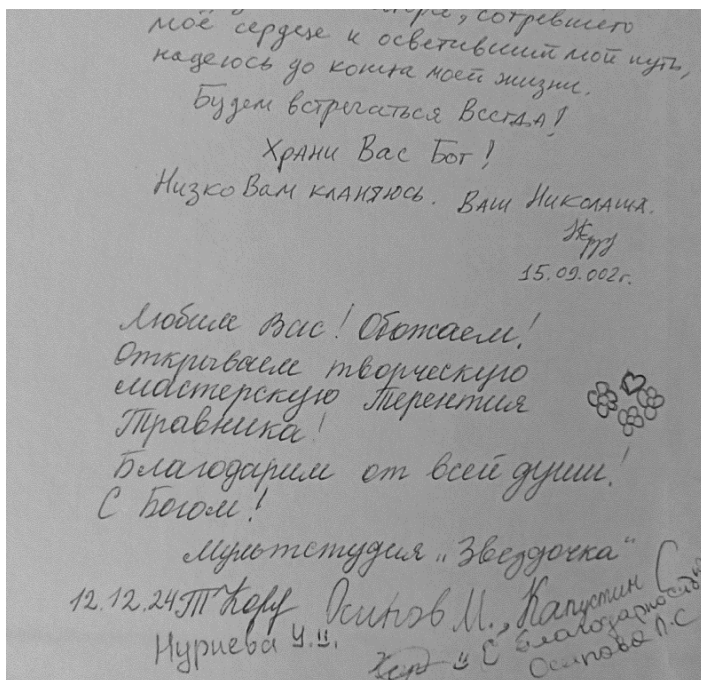 согревшего
моё сердце и осветивший мой путь,
надеюсь до конца моей жизни.
Будем встречаться Всегда!
Храни Вас Бог!
Низко Вам кланяюсь. Ваш Николаша.
15.09.002г.
Любим Вас! Обожаем!
Открываем творческую
мастерскую Терентия
Травника!
Благодарим от всей души!
С Богом!
Мультстудия „Звездочка“
12.12.24 Осипов М., Капустин С
Нуриева Ч.И. С благодарностью
Осипова Л.С